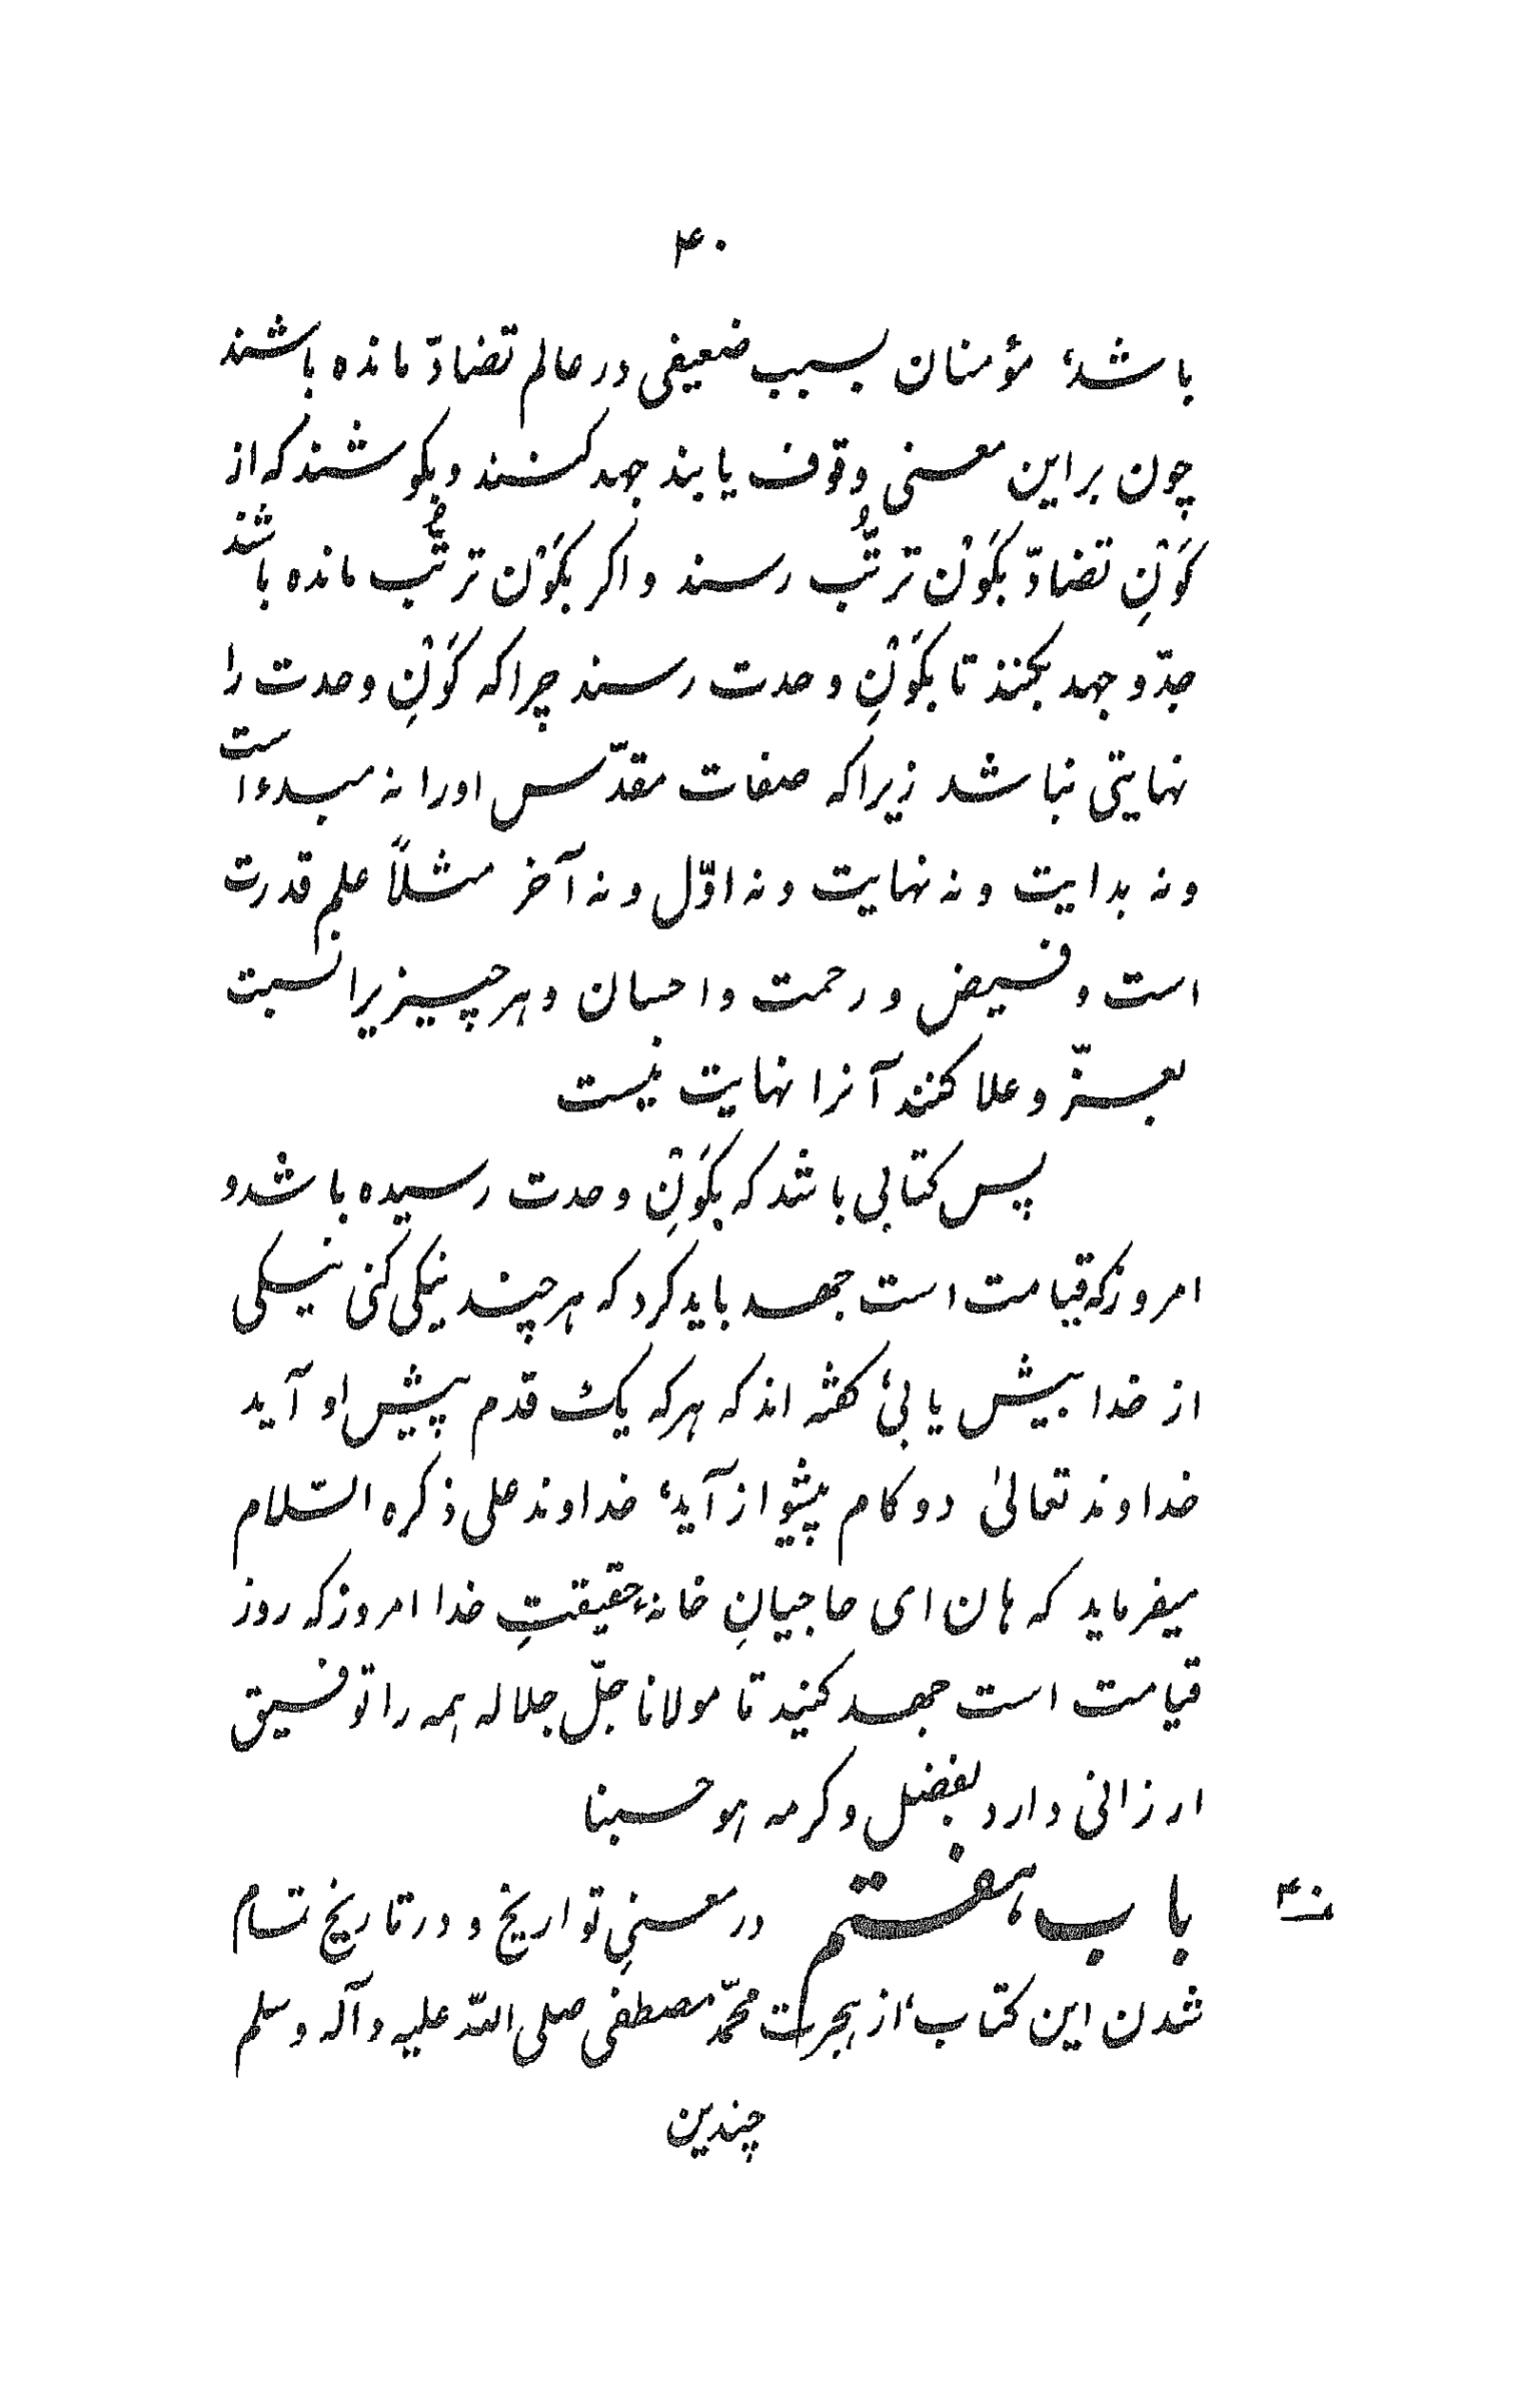 ۴۰
باشد، مؤمنان بسبب ضعیفی در عالم تضادّ مانده باشند
چون بر این معنی وقوف یابند جهد کنند و بکوشند که از
کَوْنِ تضادّ بکَوْن ترتّب رسند و اکر بکَوْن ترتّب مانده باشند
جدّ و جهد بکنند تا بکَوْنِ وحدت رسند چرا که کَوْنِ وحدت را
نهایتی نباشد زیرا که صفات مقدّس او را نه مبدء است
و نه بدایت و نه نهایت و نه اوّل و نه آخر مثلاً علم قدرت
است و فیض و رحمت و احسان و هر چیزیرا نسبت
بعزّ و علا کنند آنرا نهایت نیست
پس کتابی باشد که بکَوْنِ وحدت رسیده باشد و
امروز که قیامت است جهد باید کرد که هر چند نیکی کنی نیکی
از خدا بیش یابی، کفته اند که هر که یک قدم پیش او آید
خداوند تعالیٰ دو کام پیشواز آید، خداوند علی ذکره السّلام
میفرماید که هان ای حاجیانِ خانهٔ حقیقتِ خدا امروز که روز
قیامت است جهد کنید تا مولانا جلّ جلاله همه را توفیق
ارزانی دارد بفضل و کرمه هو حسبنا
باب هفتم در معنیِ تواریخ و در تاریخ تمام
شدن این کتاب، از هجرت محمّد مصطفی صلی اللّه علیه و آله و سلم
چندین